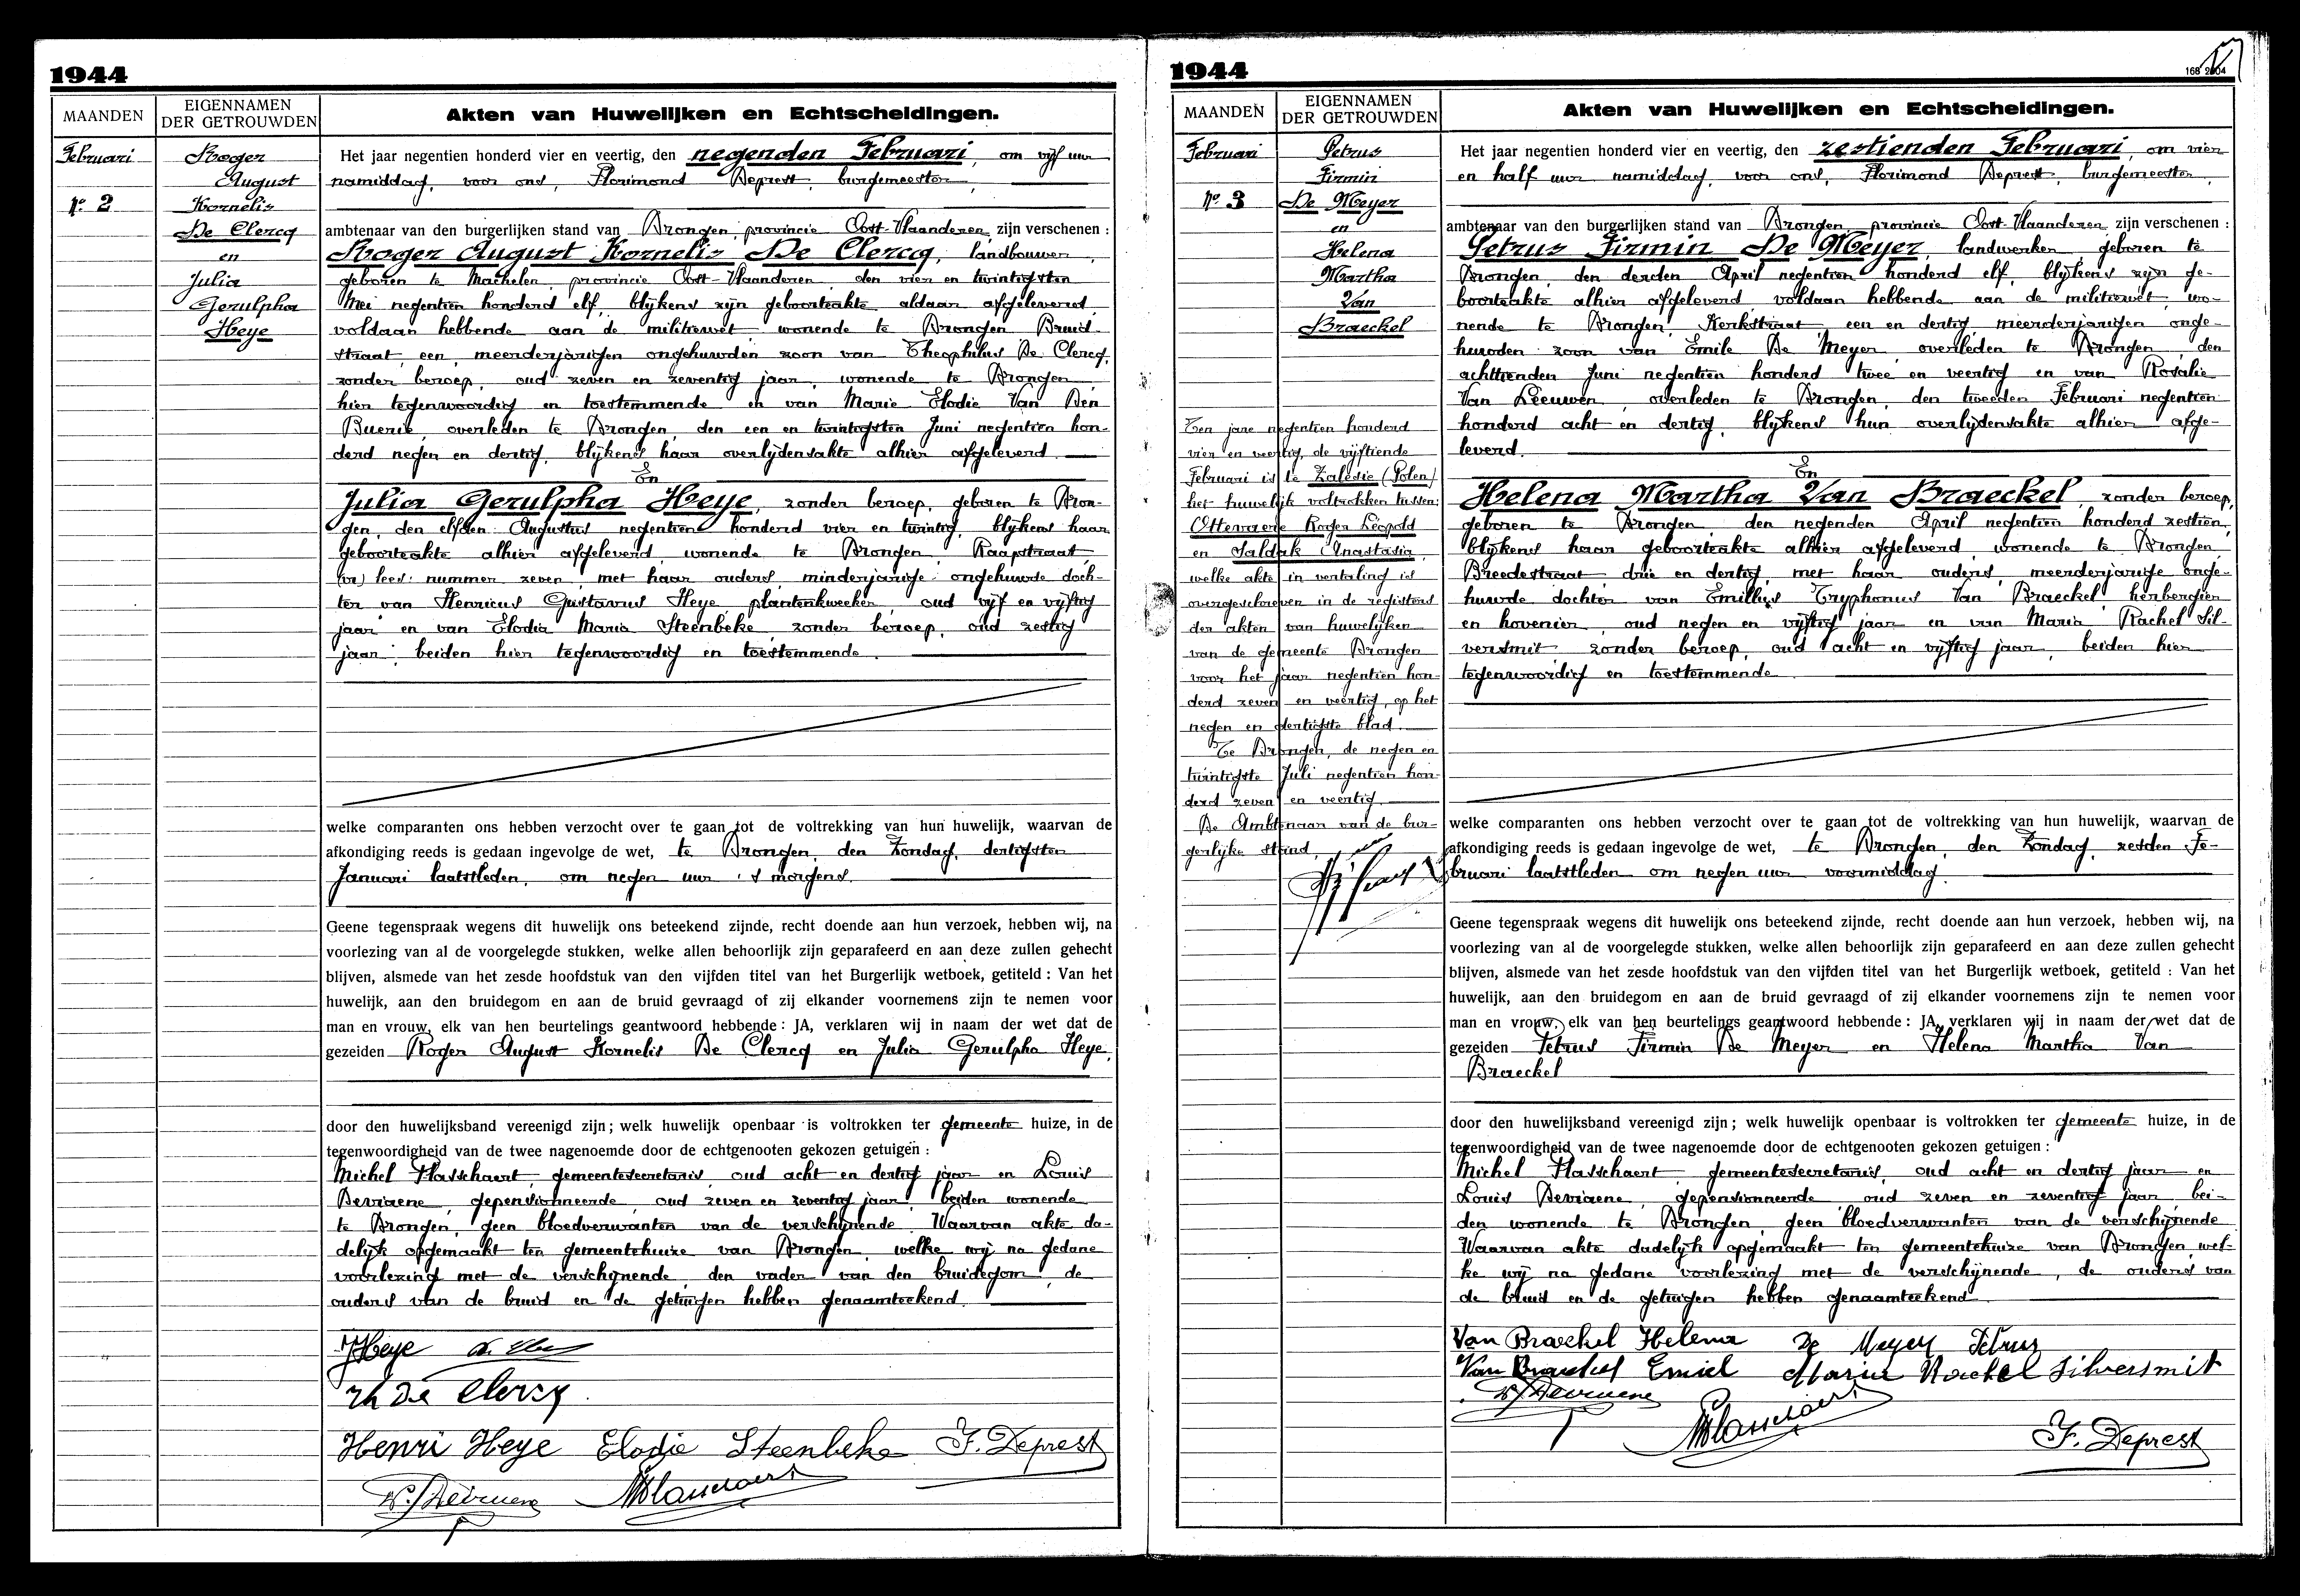 1944
MAANDEN
EIGENNAMEN
DER GETROUWDEN
Akten van Huwelijken en Echtscheidingen.
Februari
No 2
Roger
August
Kornelis
De Clercq
en
Julia
Gerulpha
Heye
Het jaar negentien honderd vier en veertig, den negenden Februari, om vijf uur
namiddag, voor ons, Florimond Deprest, burgemeester,
ambtenaar van den burgerlijken stand van Drongen, provincie Oost-Vlaanderen, zijn verschenen :
Roger August Kornelis De Clercq, landbouwer,
geboren te Machelen, provincie Oost-Vlaanderen, den vier en twintigsten
Mei negentien honderd elf, blijkens zijn geboorteakte aldaar afgeleverd,
voldaan hebbende aan de militiewet, wonende te Drongen Bruid-
straat, een, meerderjarigen ongehuwden zoon van Theophilus De Clercq,
zonder beroep, oud zeven en zeventig jaar, wonende te Drongen,
hier tegenwoordig en toestemmende en van Marie Elodie Van Den
Buerie, overleden te Drongen, den een en twintigsten Juni negentien hon-
derd negen en dertig, blijkens haar overlijdensakte alhier afgeleverd.
En
Julia Gerulpha Heye, zonder beroep, geboren te Dron-
gen, den elfden Augustus negentien honderd vier en twintig, blijkens haar
geboorteakte alhier afgeleverd, wonende te Drongen, Raapstraat,
lees: nummer zeven, met haar ouders, minderjarige ongehuwde doch-
ter van Henricus Gustavus Heye, plantenkweeker, oud vijf en vijftig
jaar en van Elodia Maria Steenbeke, zonder beroep, oud zestig
jaar; beiden hier tegenwoordig en toestemmende.
welke comparanten ons hebben verzocht over te gaan tot de voltrekking van hun huwelijk, waarvan de
afkondiging reeds is gedaan ingevolge de wet, te Drongen, den Zondag, dertigsten
Januari laatstleden, om negen uur 's morgens.
Geene tegenspraak wegens dit huwelijk ons beteekend zijnde, recht doende aan hun verzoek, hebben wij, na
voorlezing van al de voorgelegde stukken, welke allen behoorlijk zijn geparafeerd en aan deze zullen gehecht
blijven, alsmede van het zesde hoofdstuk van den vijfden titel van het Burgerlijk wetboek, getiteld : Van het
huwelijk, aan den bruidegom en aan de bruid gevraagd of zij elkander voornemens zijn te nemen voor
man en vrouw, elk van hen beurtelings geantwoord hebbende : JA, verklaren wij in naam der wet dat de
gezeiden Roger August Kornelis De Clercq en Julia Gerulpha Heye,
door den huwelijksband vereenigd zijn ; welk huwelijk openbaar is voltrokken ter gemeente huize, in de
tegenwoordigheid van de twee nagenoemde door de echtgenooten gekozen getuigen :
Michel Plasschaert, gemeentesecretaris, oud acht en dertig jaar en Louis
Devriaene, gepensionneerde, oud zeven en zeventig jaar, beiden wonende
te Drongen, geen bloedverwanten van de verschijnende. Waarvan akte da-
delijk opgemaakt ten gemeentehuize van Drongen, welke wij na gedane
voorlezing met de verschijnende, den vader van den bruidegom, de
ouders van de bruid en de getuigen hebben genaamteekend.
J Heye
Th De Clercq
Henri Heye Elodie Steenbeke F. Deprest
1944
168 2004
MAANDEN
EIGENNAMEN
DER GETROUWDEN
Akten van Huwelijken en Echtscheidingen.
Februari
No 3
Petrus
Firmin
De Meyer
en
Helena
Martha
Van
Braeckel
Ten jare negentien honderd
vier en veertig, de vijftiende
Februari is te Zalesie (Polen)
het huwelijk voltrokken tussen:
Ottevaere Roger Leopold
en Saldak Anastasia,
welke akte in vertaling is
overgeschreven in de registers
der akten van huwelijken
van de gemeente Drongen
voor het jaar negentien hon-
derd zeven en veertig, op het
negen en dertigste blad.
Te Drongen, de negen en
twintigste Juli negentien hon-
derd zeven en veertig.
De Ambtenaar van de bur-
gerlijke stand,
Het jaar negentien honderd vier en veertig, den zestienden Februari, om vier
en half uur namiddag, voor ons, Florimond Deprest, burgemeester,
ambtenaar van den burgerlijken stand van Drongen, provincie Oost-Vlaanderen, zijn verschenen :
Petrus Firmin De Meyer, landwerker, geboren te
Drongen, den derden April negentien honderd elf, blijkens zijn ge-
boorteakte alhier afgeleverd, voldaan hebbende aan de militiewet, wo-
nende te Drongen, Kerkstraat, een en dertig, meerderjarigen onge-
huwden zoon van Emile De Meyer, overleden te Drongen, den
achttienden Juni negentien honderd twee en veertig en van Rosalie
Van Leeuwen, overleden te Drongen, den tweeden Februari negentien
honderd acht en dertig, blijkens hun overlijdensakte alhier afge-
leverd.
En
Helena Martha Van Braeckel, zonder beroep,
geboren te Drongen, den negenden April negentien honderd zestien,
blijkens haar geboorteakte alhier afgeleverd, wonende te Drongen,
Breedestraat, drie en dertig, met haar ouders, meerderjarige onge-
huwde dochter van Emillus Tryphonus Van Braeckel, herbergier
en hovenier, oud negen en vijftig jaar en van Maria Rachel Sil-
versmit, zonder beroep, oud acht en vijftig jaar, beiden hier
tegenwoordig en toestemmende.
welke comparanten ons hebben verzocht over te gaan tot de voltrekking van hun huwelijk, waarvan de
afkondiging reeds is gedaan ingevolge de wet, te Drongen, den Zondag, zesden Fe-
bruari laatstleden om negen uur voormiddag.
Geene tegenspraak wegens dit huwelijk ons beteekend zijnde, recht doende aan hun verzoek, hebben wij, na
voorlezing van al de voorgelegde stukken, welke allen behoorlijk zijn geparafeerd en aan deze zullen gehecht
blijven, alsmede van het zesde hoofdstuk van den vijfden titel van het Burgerlijk wetboek, getiteld : Van het
huwelijk, aan den bruidegom en aan de bruid gevraagd of zij elkander voornemens zijn te nemen voor
man en vrouw, elk van hen beurtelings geantwoord hebbende : JA, verklaren wij in naam der wet dat de
gezeiden Petrus Firmin De Meyer en Helena Martha Van
Braeckel
door den huwelijksband vereenigd zijn ; welk huwelijk openbaar is voltrokken ter gemeente huize, in de
tegenwoordigheid van de twee nagenoemde door de echtgenooten gekozen getuigen :
Michel Plasschaert, gemeentesecretaris, oud acht en dertig jaar en
Louis Devriaene, gepensionneerde, oud zeven en zeventig jaar, bei-
den wonende te Drongen, geen bloedverwanten van de verschijnende.
Waarvan akte dadelijk opgemaakt ten gemeentehuize van Drongen, wel-
ke wij na gedane voorlezing met de verschijnende, de ouders van
de bruid en de getuigen hebben genaamteekend.
Van Braeckel Helena De Meyer Petrus
Van Braeckel Emiel Maria Rachel Silversmit
F. Deprest